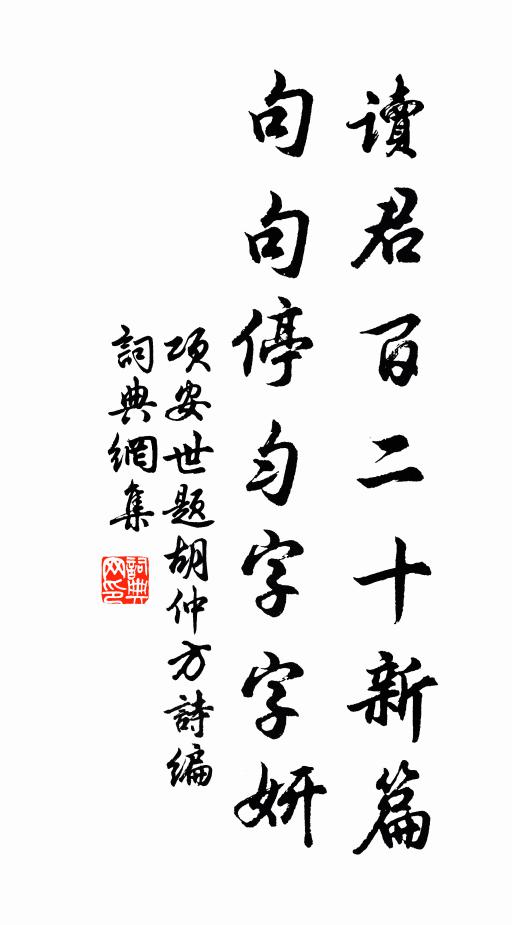 讀君百二十新篇
句句停勻字字妍
項安世題胡仲方詩編
詞典網集
詞典網印